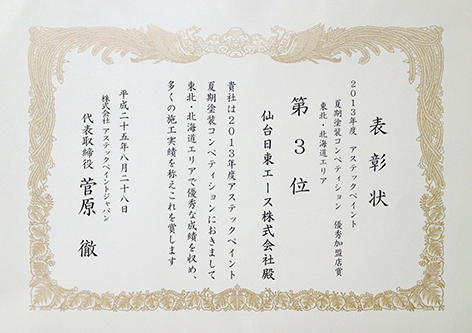 表彰状
2013年度　アステックペイント
夏期塗装コンペティション　優秀加盟店賞
東北・北海道エリア
第3位
仙台日東エース株式会社殿
貴社は2013年度アステックペイント
夏期塗装コンペティションにおきまして
東北・北海道エリアで優秀な成績を収め、
多くの施工実績を称えこれを賞します
平成二十五年八月二十八日
株式会社 アステックペイントジャパン
代表取締役 菅原 徹